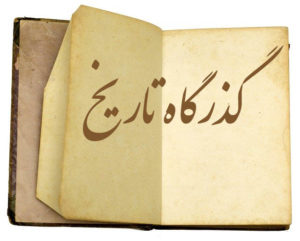 گذرگاه تاریخ